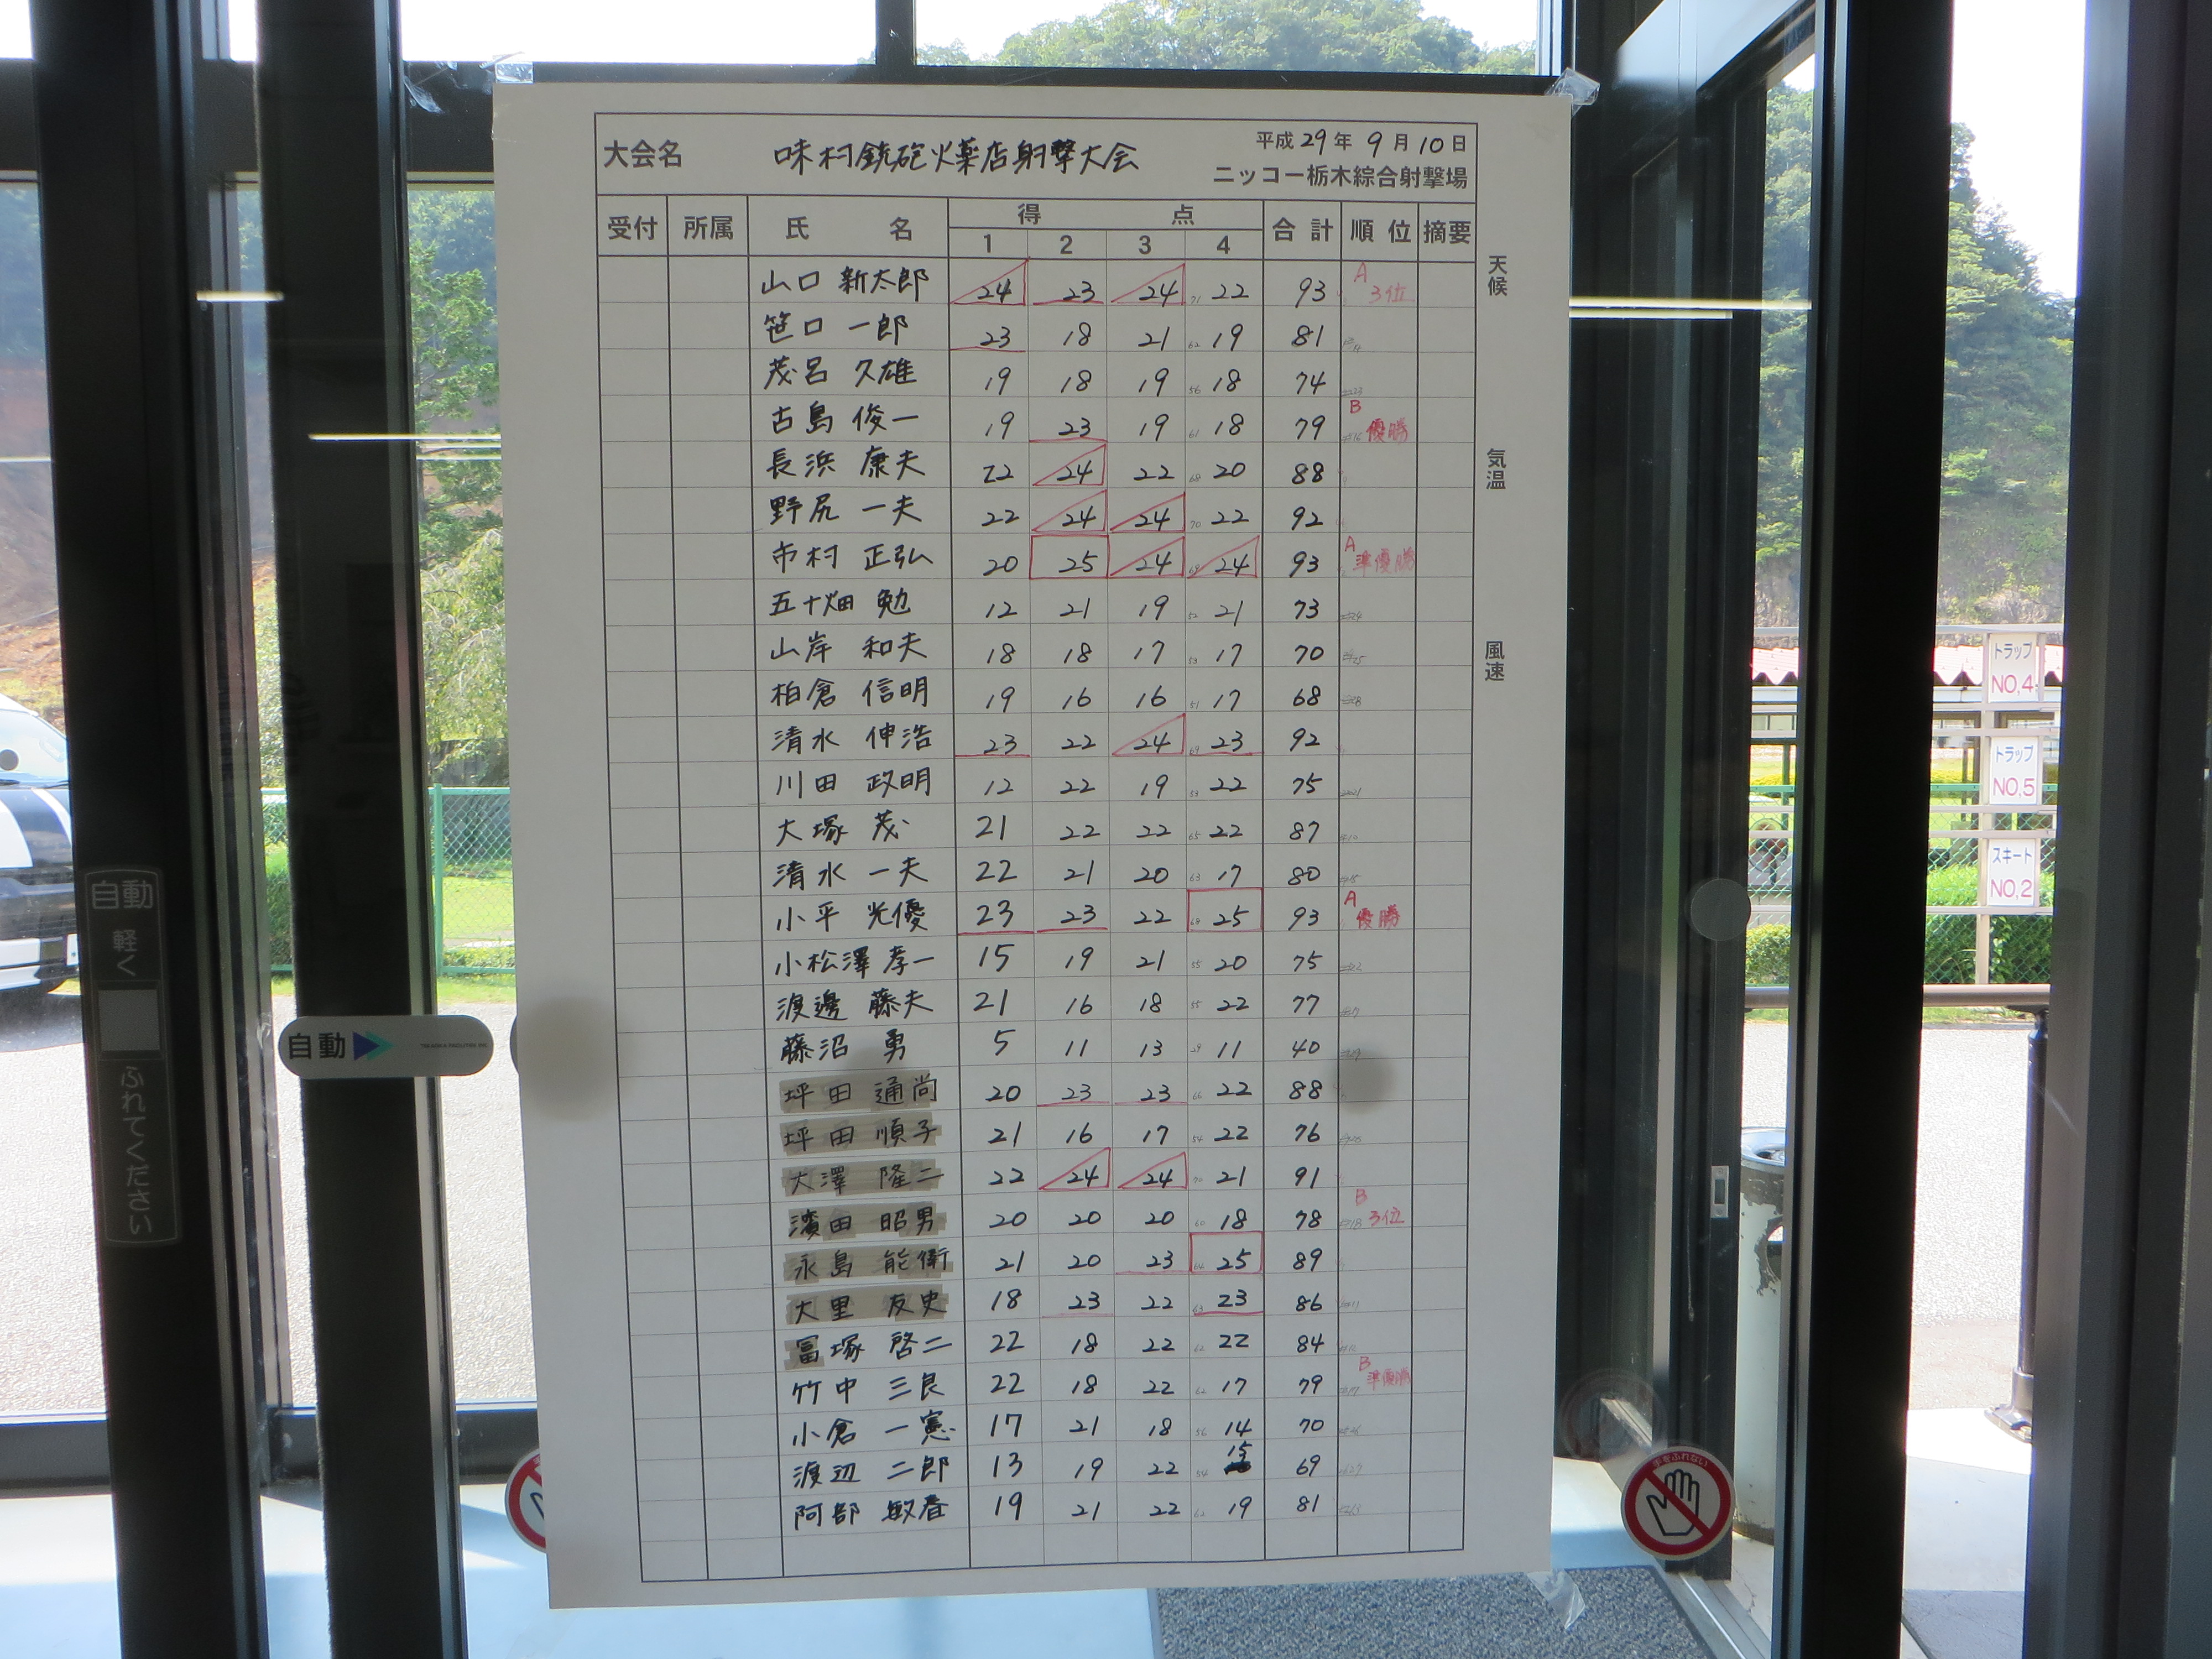 大会名 味村銃砲火薬店射撃大会 平成29年9月10日
ニッコー栃木綜合射撃場
受付 所属 氏名 得点 合計 順位 摘要
1 2 3 4
山口 新太郎 24 23 24 71 22 93 A 3位
笹口 一郎 23 18 21 62 19 81
茂呂 久雄 19 18 19 56 18 74
古島 俊一 19 23 19 61 18 79 B 優勝
長浜 康夫 22 24 22 68 20 88
野尻 一夫 22 24 24 70 22 92
市村 正弘 20 25 24 69 24 93 A 準優勝
五十畑 勉 12 21 19 52 21 73
山岸 和夫 18 18 17 53 17 70
柏倉 信明 19 16 16 51 17 68
清水 伸浩 23 22 24 69 23 92
川田 政明 12 22 19 53 22 75
大塚 茂 21 22 22 65 22 87
清水 一夫 22 21 20 63 17 80
小平 光優 23 23 22 68 25 93 A 優勝
小松澤 孝一 15 19 21 55 20 75
渡邊 藤夫 21 16 18 55 22 77
藤沼 勇 5 11 13 29 11 40
坪田 通尚 20 23 23 66 22 88
坪田 順子 21 16 17 54 22 76
大澤 隆二 22 24 24 70 21 91
濱田 昭男 20 20 20 60 18 78 B 3位
永島 能衛 21 20 23 64 25 89
大里 友史 18 23 22 63 23 86
冨塚 啓二 22 18 22 62 22 84
竹中 三良 22 18 22 62 17 79 B 準優勝
小倉 一憲 17 21 18 56 14 70
渡辺 二郎 13 19 22 54 15 69
阿部 敏春 19 21 22 62 19 81
天候
気温
風速
自動
軽く
ふれてください
自動
トラップ
NO,4
トラップ
NO,5
スキート
NO,2
手をふれない